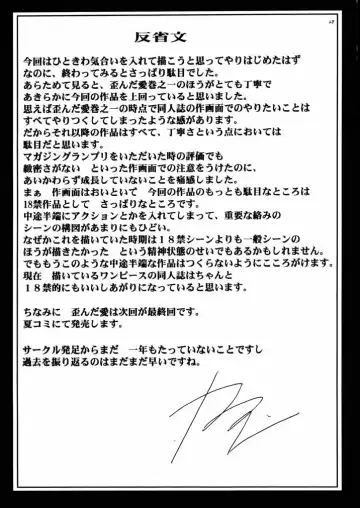 反省文
今回はひときわ気合いを入れて描こうと思ってやりはじめたはず
なのに、終わってみるとさっぱり駄目でした。
あらためて見ると、歪んだ愛巻之一のほうがとても丁寧で
あきらかに今回の作品を上回っていると思いました。
思えば歪んだ愛巻之一の時点で同人誌の作画面でのやりたいことは
すべてやりつくしてしまったような感があります。
だからそれ以降の作品はすべて、丁寧さという点においては
駄目だと思います。
マガジングランプリをいただいた時の評価でも
緻密さがない　といった作画面での注意をうけたのに、
あいかわらず成長していないことを痛感しました。
まぁ　作画面はおいといて　今回の作品のもっとも駄目なところは
18禁作品として　さっぱりなところです。
中途半端にアクションとかを入れてしまって、重要な絡みの
シーンの構図があまりにもひどい。
なぜかこれを描いていた時期は１８禁シーンよりも一般シーンの
ほうが描きたかった　という精神状態のせいでもあるかもしれません。
でももうこのような中途半端な作品はつくらないようにこころがけます。
現在　描いているワンピースの同人誌はちゃんと
１８禁的にもいいしあがりになっていると思います。
ちなみに　歪んだ愛は次回が最終回です。
夏コミにて発売します。
サークル発足からまだ　一年もたっていないことですし
過去を振り返るのはまだまだ早いですね。